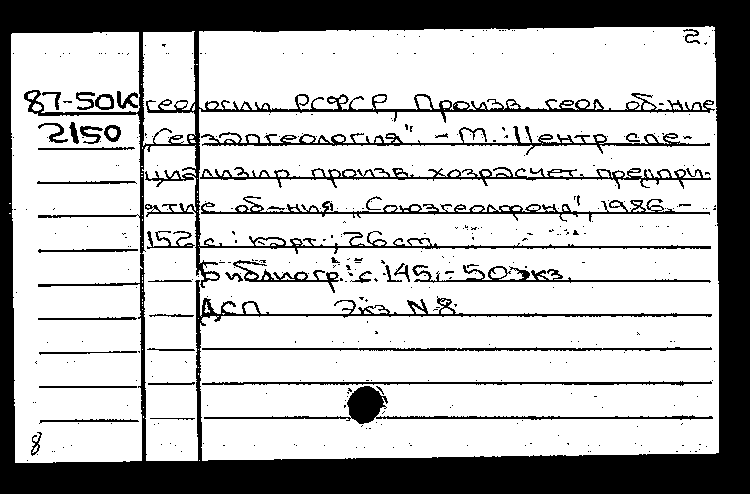 2.
87-50К геологии РСФСР, Произв. геол. об-ние
2150 „Севзапгеология". - М.: Центр спе-
циализир. произв. хозрасчет. предпри-
ятие об-ния „Союзгеолфонд", 1986. -
152 с.: карт.; 26 см.
Библиогр.: с. 145. - 50 экз.
ДСП. Экз. N 8.
8